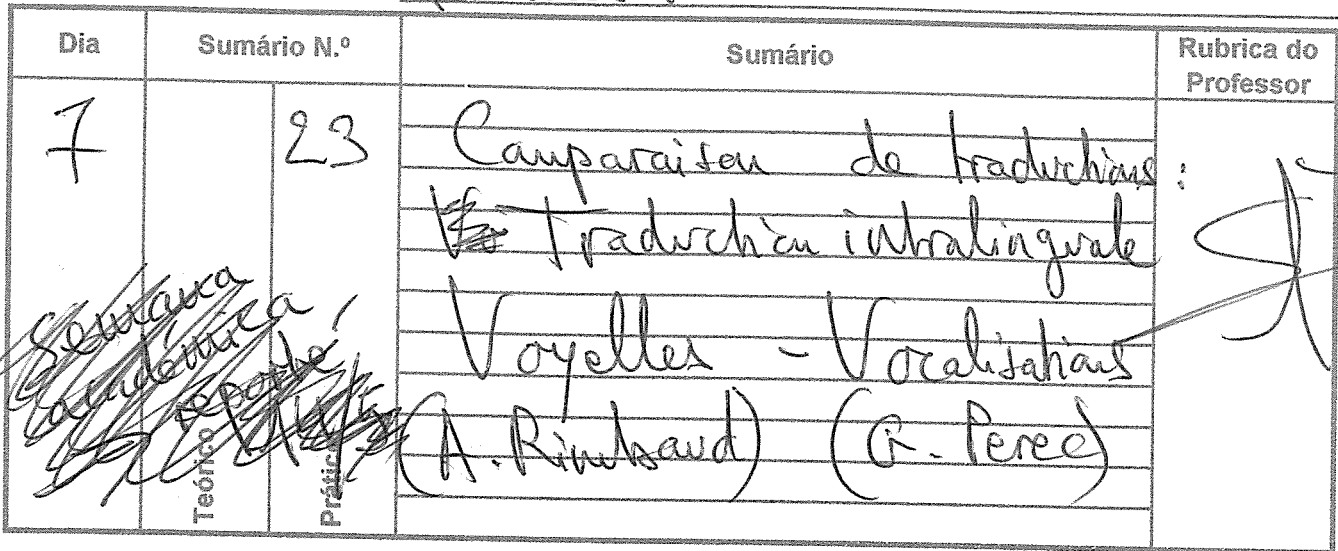 Dia Sumário N.º Sumário Rubrica do Professor
7 23 Comparaison de traductions :
Traduction intralinguale
Voyelles - Vocalisations
(A. Rimbaud) (G. Perec)
Semana
académica
reporté
Teórico Prático